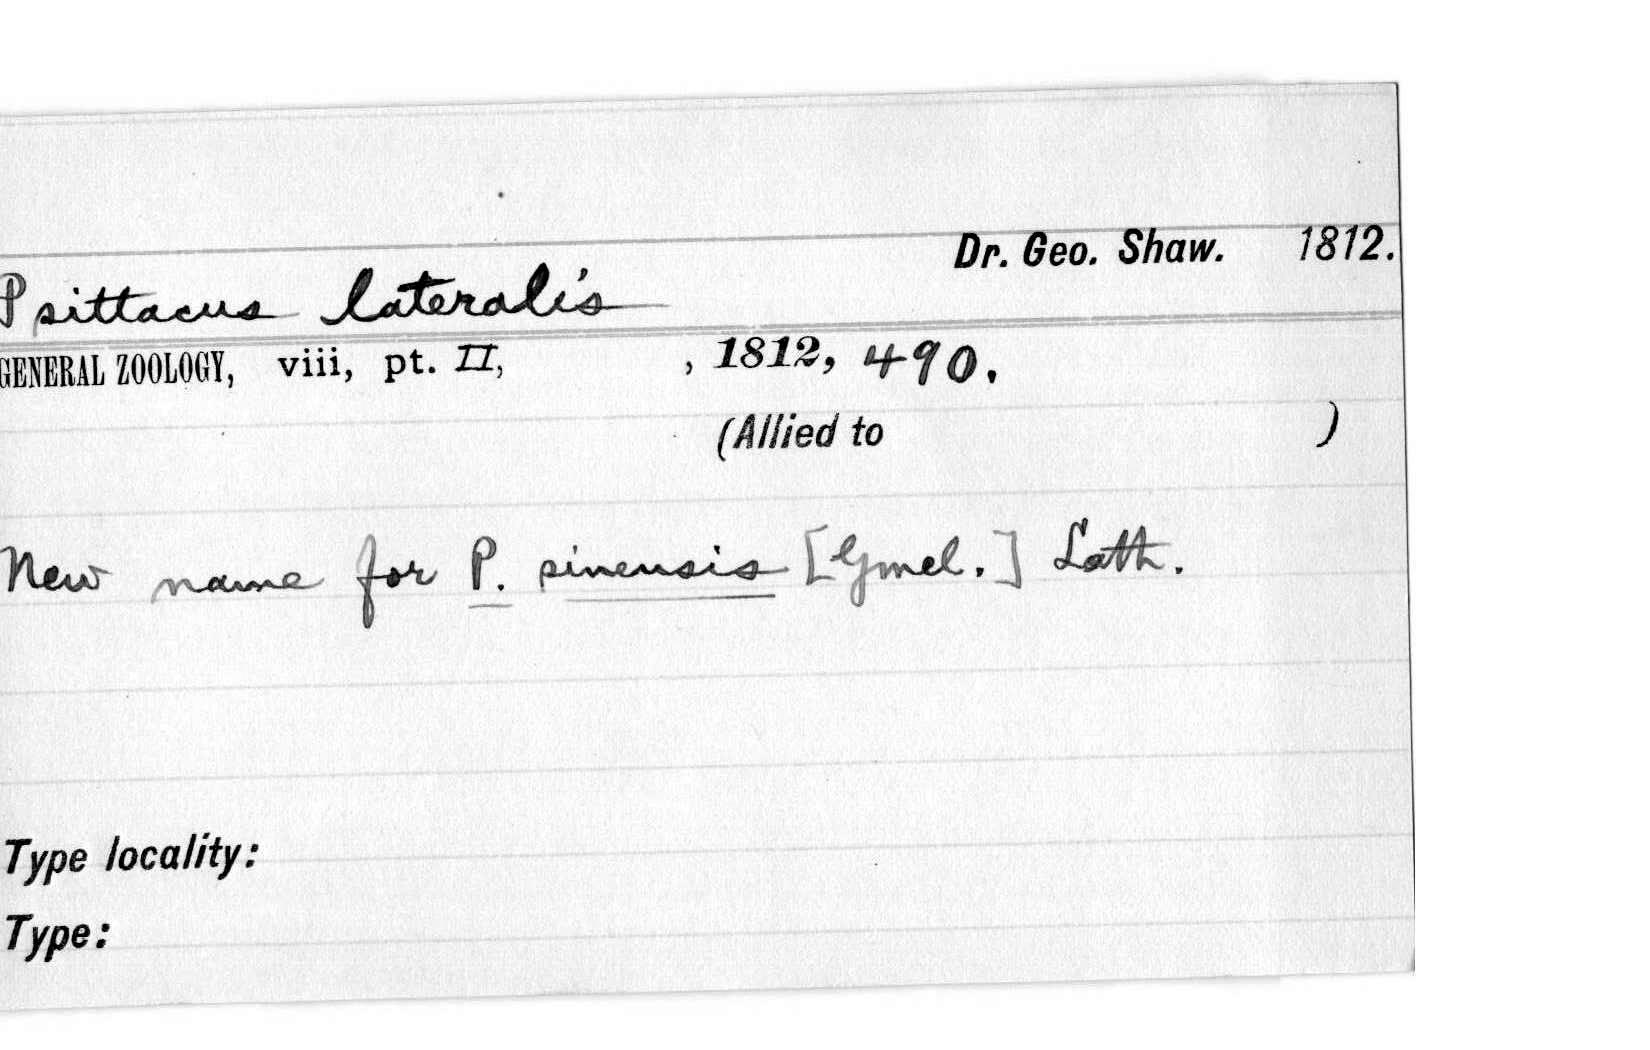 Dr. Geo. Shaw. 1812.
Psittacus lateralis
GENERAL ZOOLOGY, viii, pt. II, , 1812, 490.
(Allied to )
New name for P. sinensis [Gmel.] Lath.
Type locality:
Type: